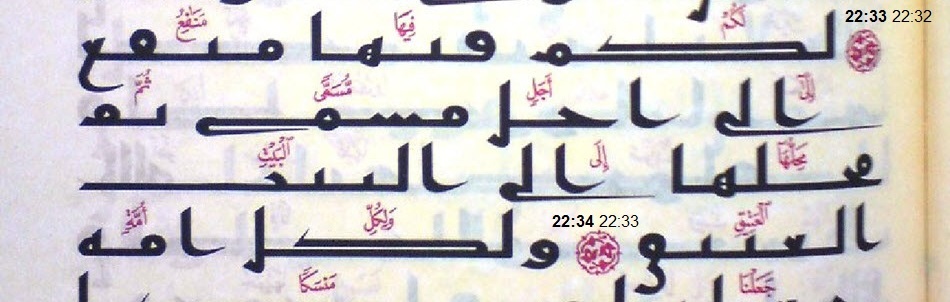 22:33 22:32
لَكُمْ فِيهَا مَنَٰفِعُ
لكم فيها منفع
إِلَىٰٓ أَجَلٍ مُّسَمًّى ثُمَّ
الى اجل مسمى ثم
مَحِلُّهَآ إِلَى ٱلْبَيْتِ
محلها الى البيت
ٱلْعَتِيقِ 22:34 22:33 وَلِكُلِّ أُمَّةٍ
العتيق ولكل امه
جَعَلْنَا مَنسَكًا